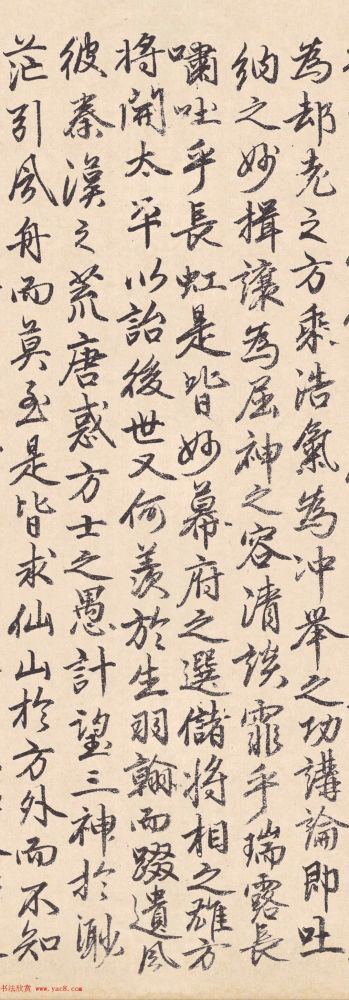 為却老之方乘浩氣為冲舉之功講論即吐
納之妙揖讓為屈神之容清談霏乎瑞露長
嘯吐乎長虹是皆妙幕府之選儲將相之雄方
將開太平以詒後世又何羨於生羽翰而躡遺風
彼秦漢之荒唐惑方士之愚計望三神於渺
茫引風舟而莫至是皆求仙山於方外而不知
书法欣赏 www.yac8.com